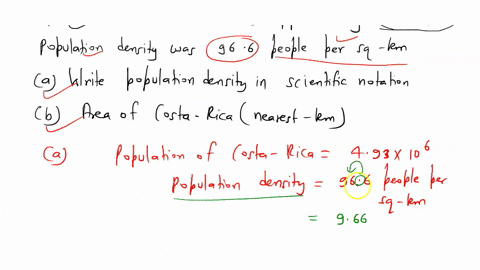 Population density was 96.6 people per sq-km
(a) Write population density in scientific notation
(b) Area of Costa-Rica (nearest-km)
(a) Population of Costa-Rica = 4.93 x 10^6
Population density = 96.6 people per
sq-km
= 9.66